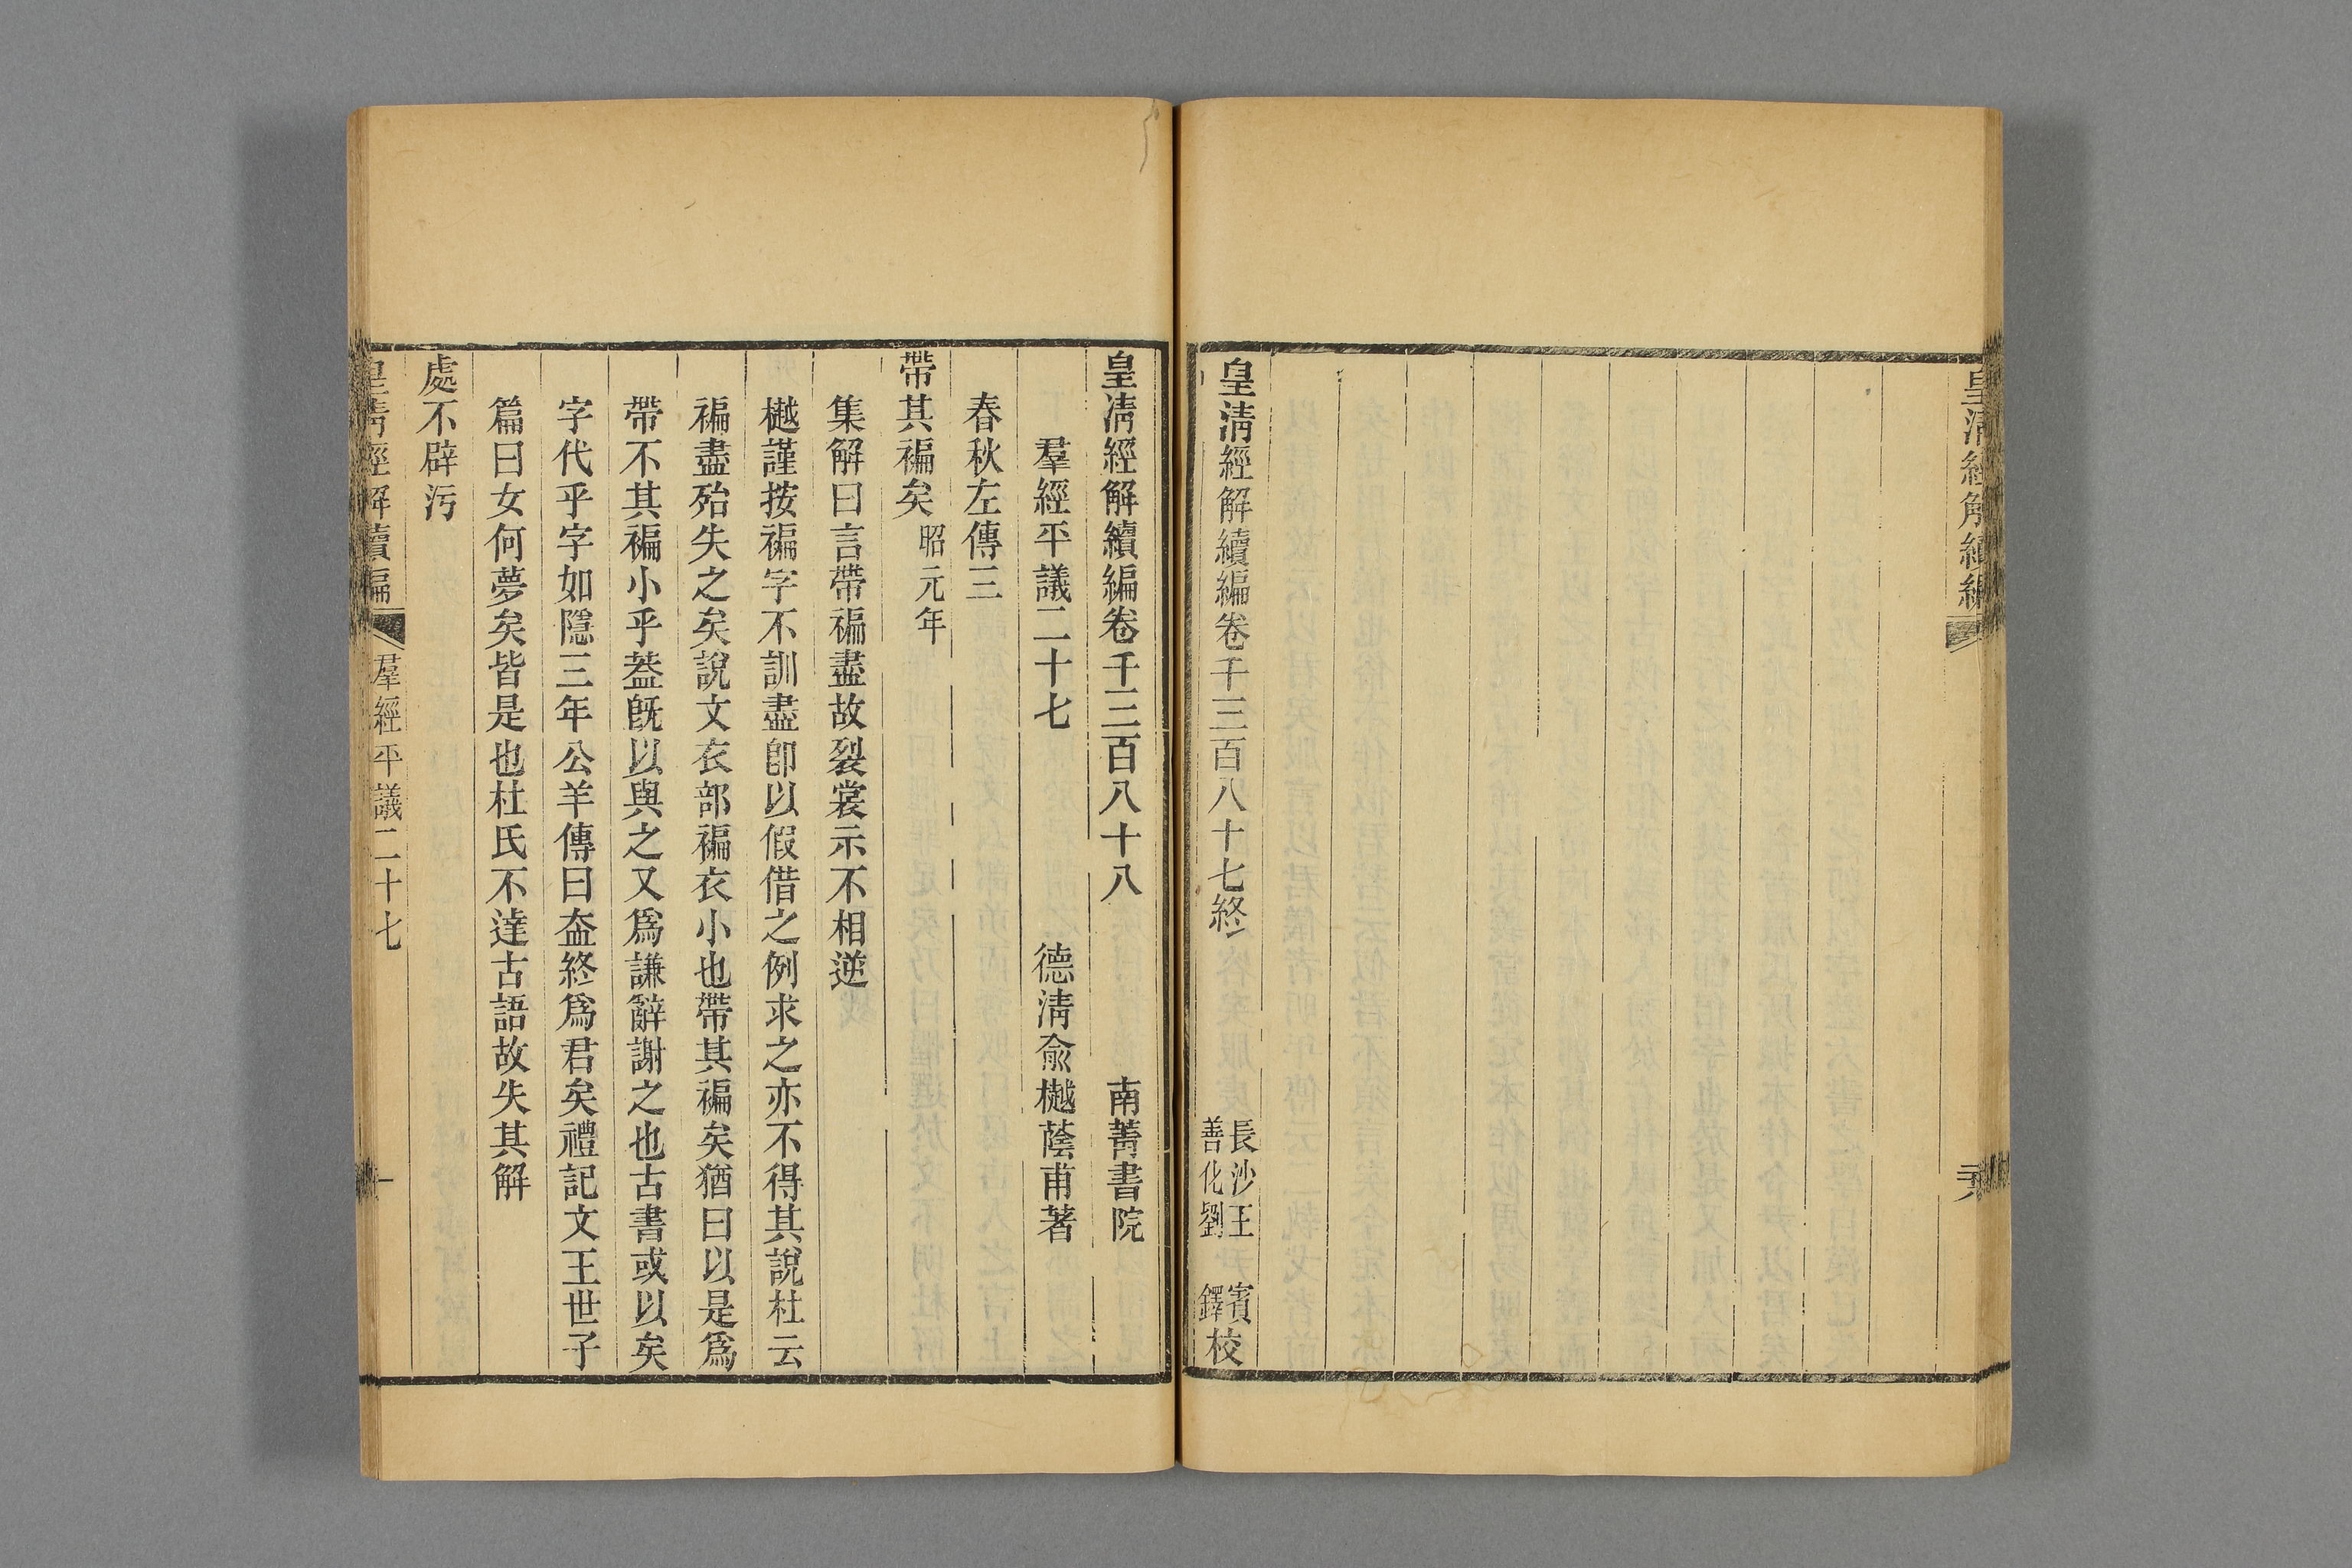 皇清經解續編
皇清經解續編卷千三百八十七終
長沙王賓
善化劉鐸校
皇清經解續編卷千三百八十八 南菁書院
羣經平議二十七 德清俞樾蔭甫著
春秋左傳三
帶其褊矣昭元年
集解曰言帶褊盡故裂裳示不相逆
樾謹按褊字不訓盡卽以假借之例求之亦不得其說杜云
褊盡殆失之矣說文衣部褊衣小也帶其褊矣猶曰以是爲
帶不其褊小乎葢旣以與之又爲謙辭謝之也古書或以矣
字代乎字如隱三年公羊傳曰盍終爲君矣禮記文王世子
篇曰女何夢矣皆是也杜氏不達古語故失其解
處不辟污
皇清經解續編 羣經平議二十七 一